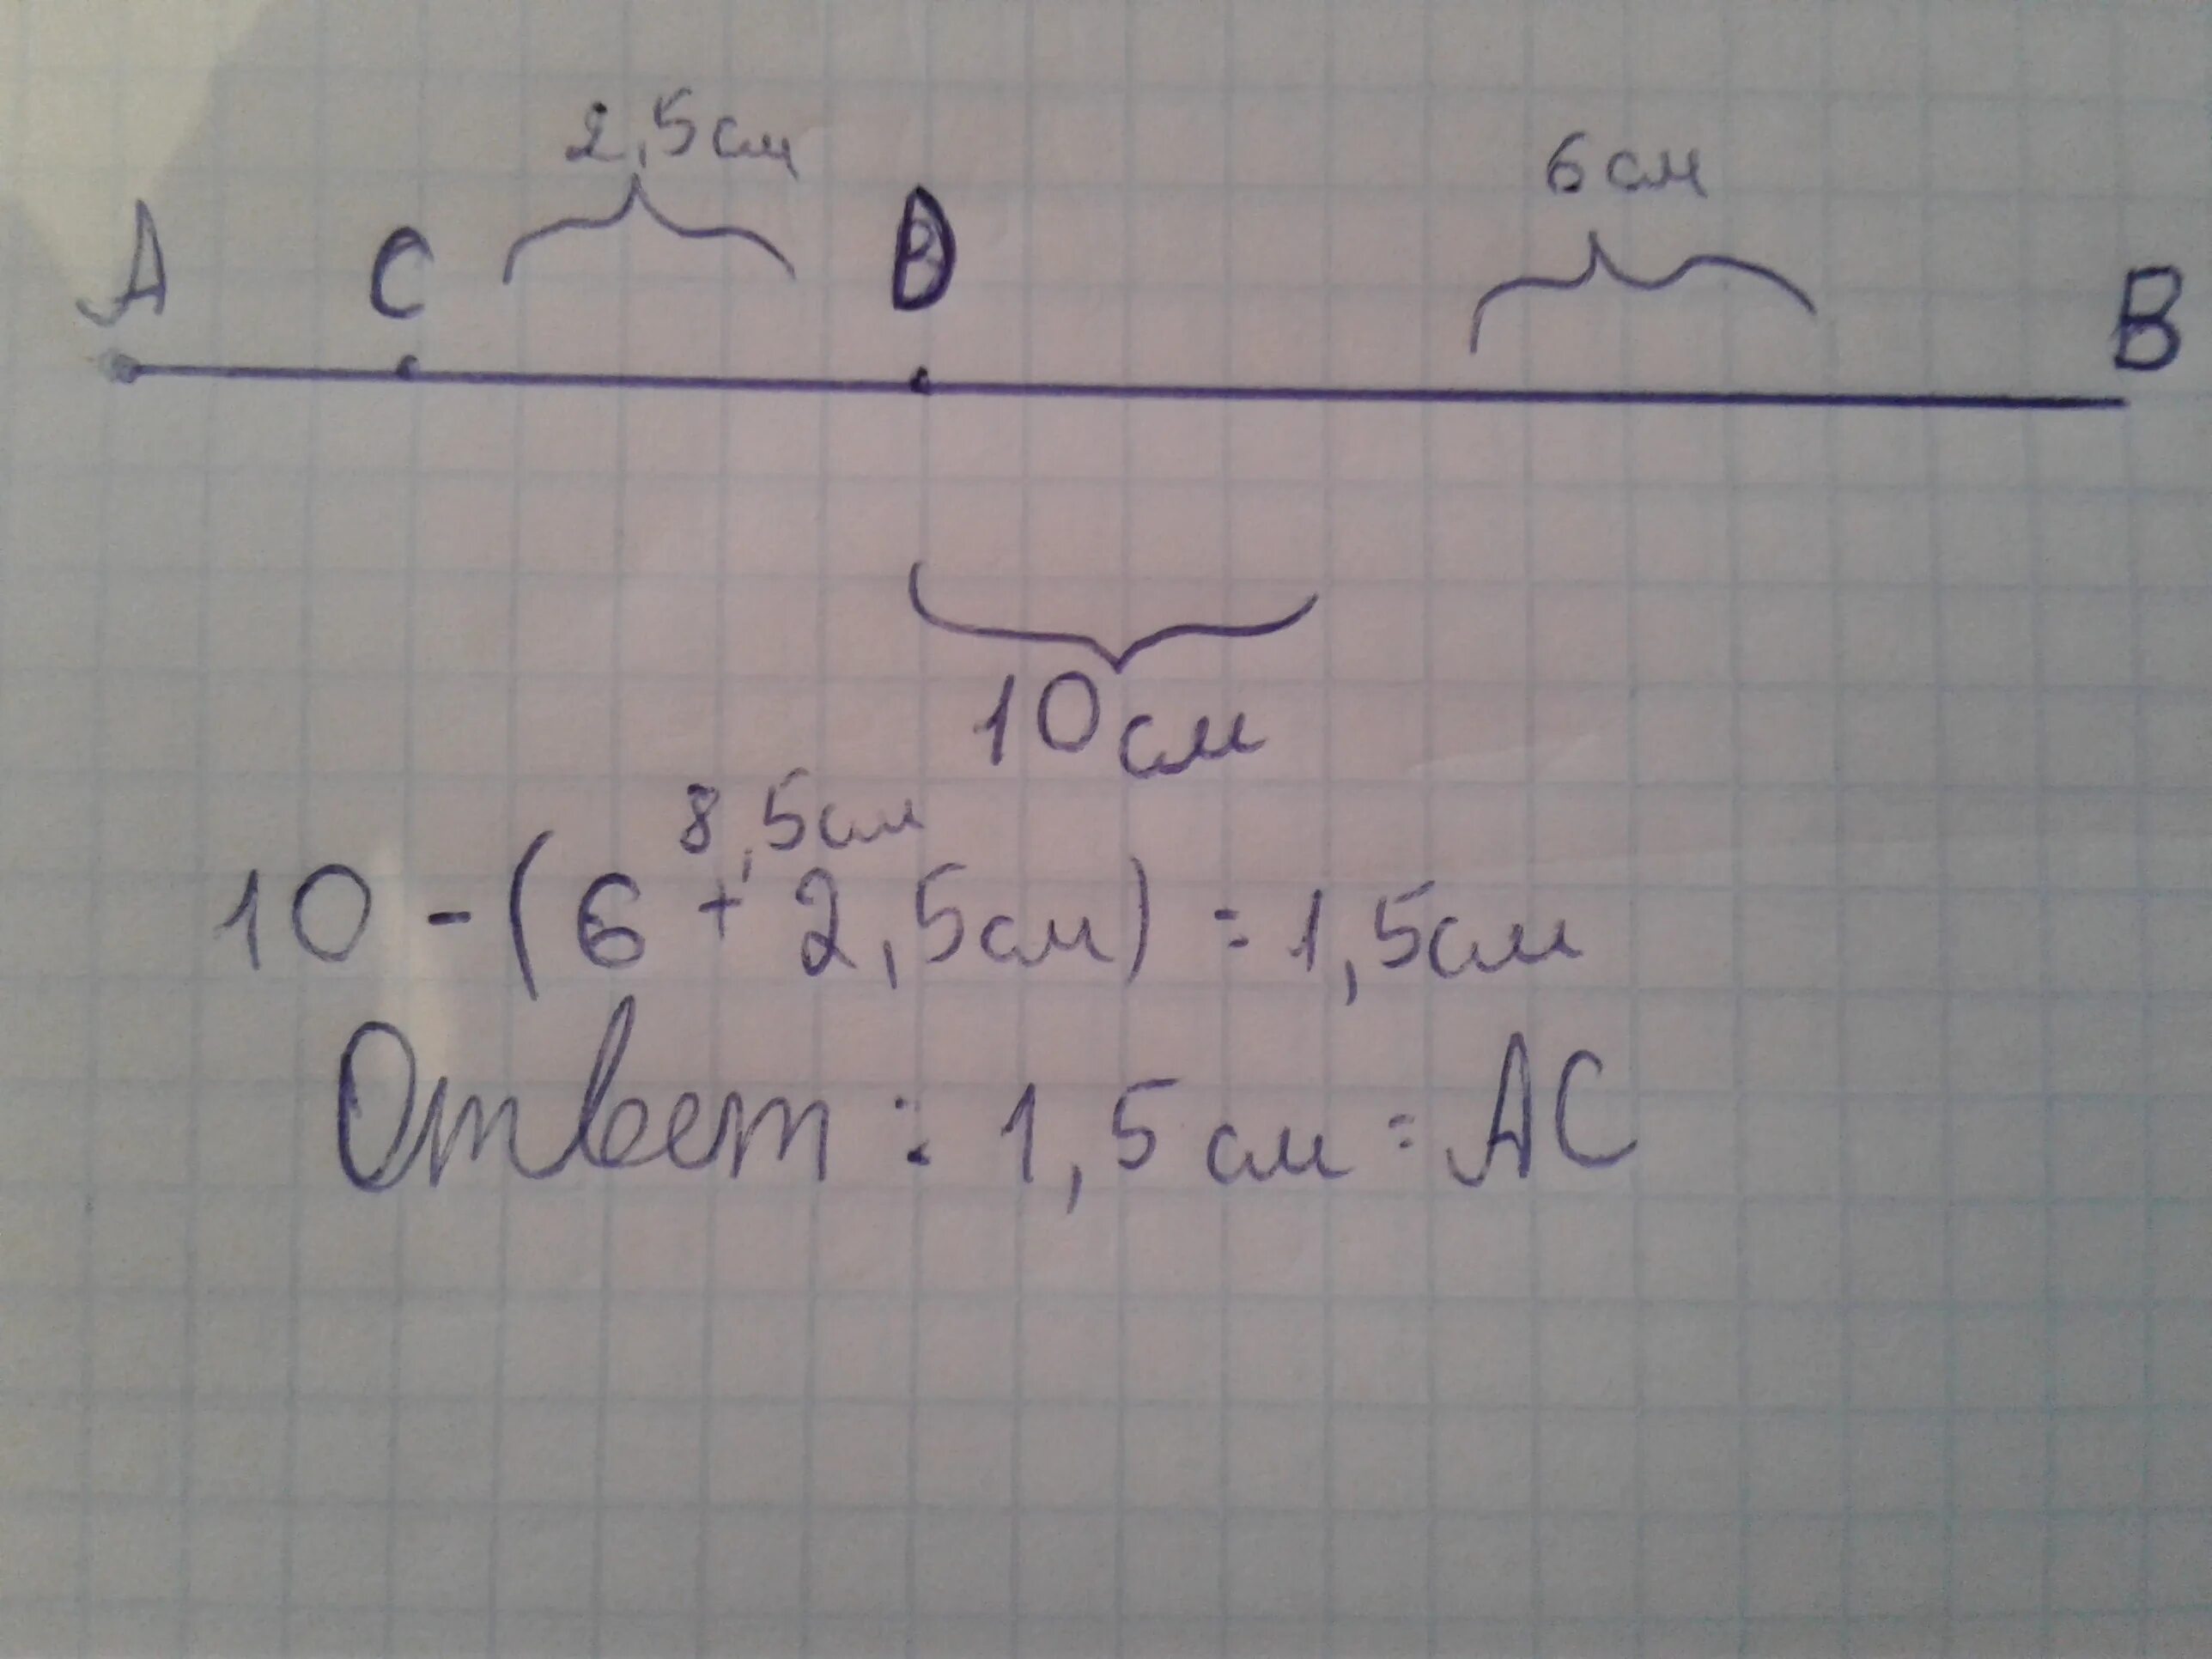 2,5см 6см
A C D B
10см
8,5см
10 - (6 + 2,5см) = 1,5см
Ответ: 1,5см = AC